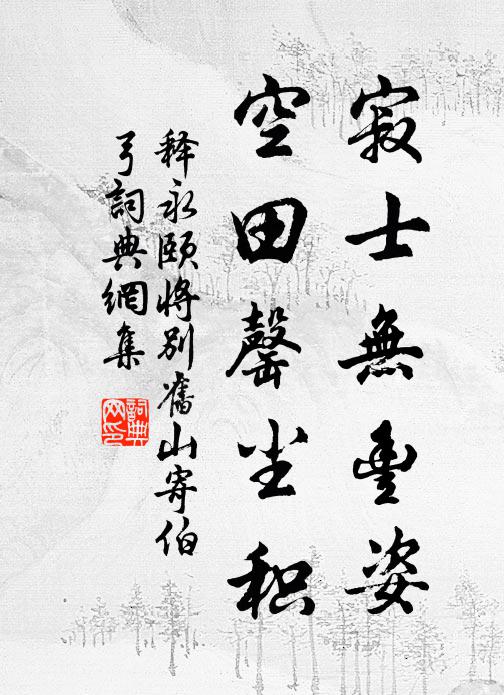 寂士無豊姿
空田罄尘积
释永頤将別舊山寄伯
弓詞典網集
詞典
网印